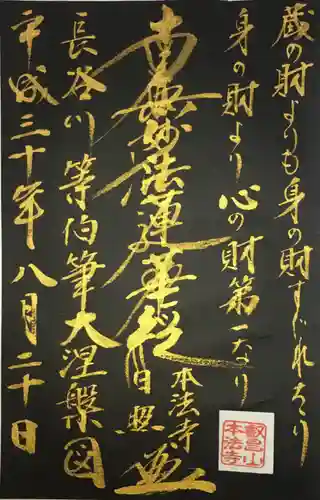 蔵の財よりも身の財すぐれたり
身の財より心の財第一なり
南無妙法蓮華経
日照
本法寺
長谷川等伯筆大涅槃図
平成三十年八月二十日
叡昌山
本法寺